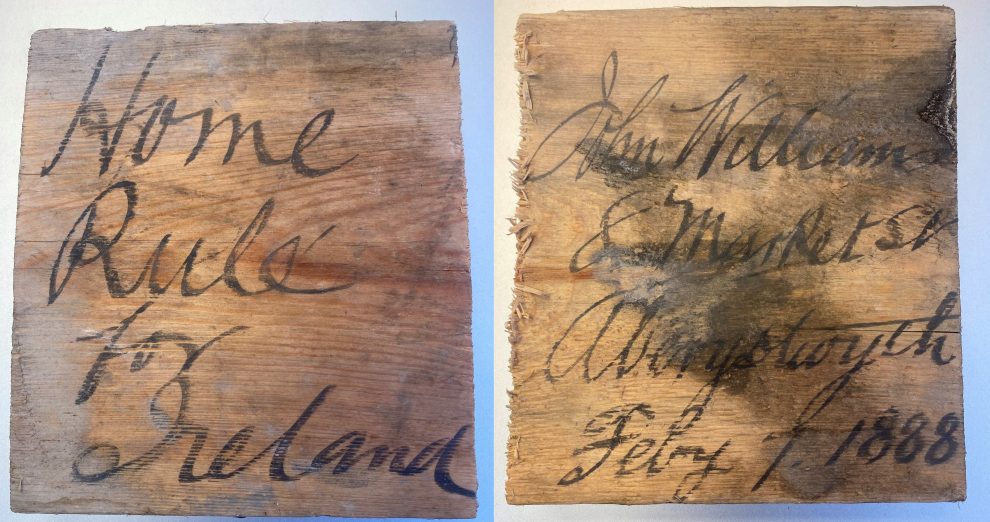 Home
Rule
for
Ireland
John Williams
8 Market St
Aberystwyth
Feby 7. 1888